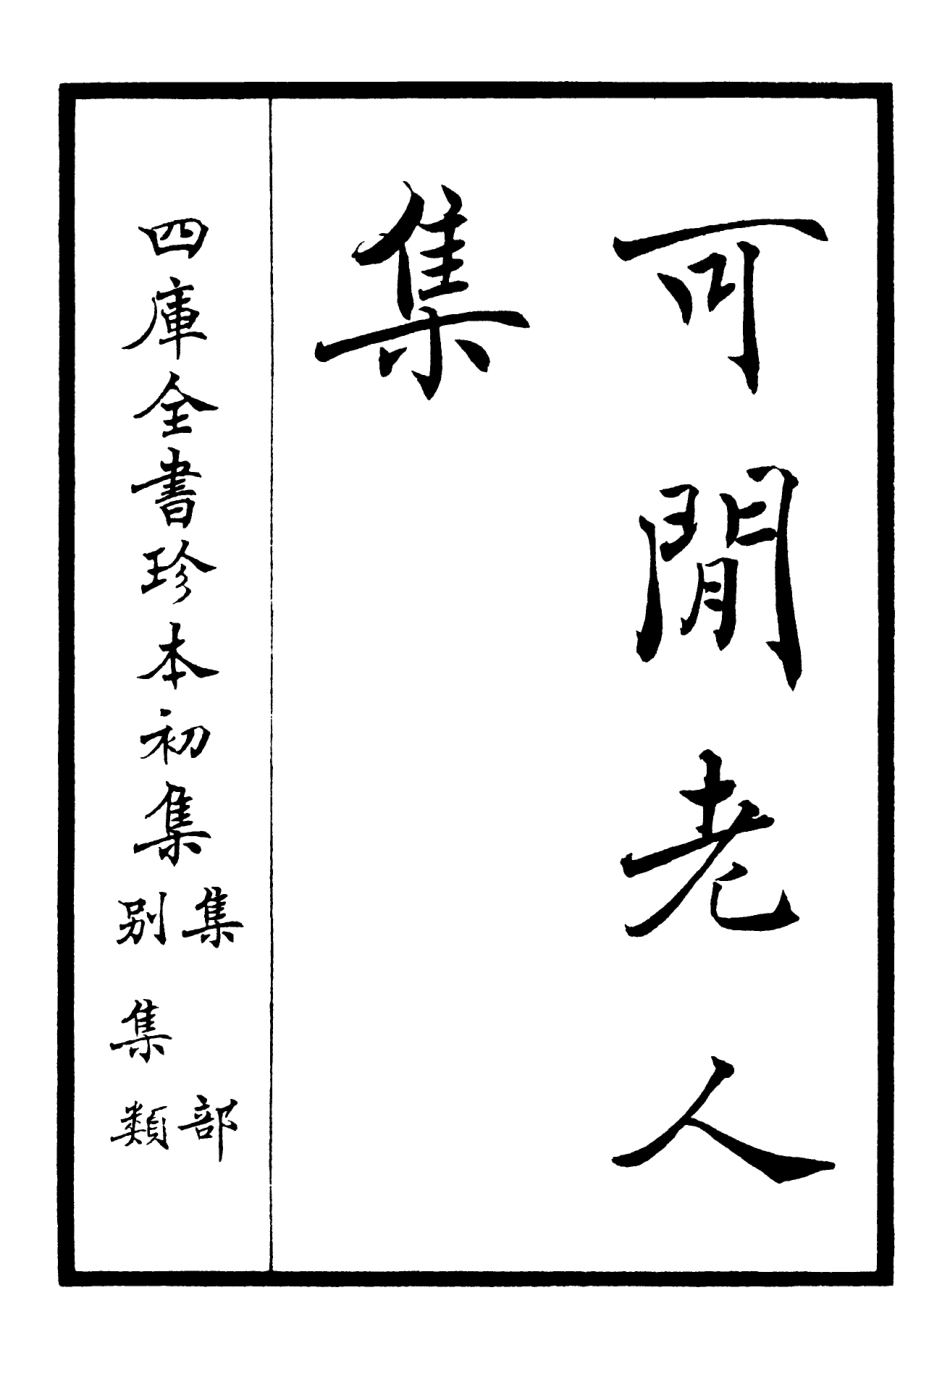 可閒老人
集
四庫全書珍本初集
集部
別集類